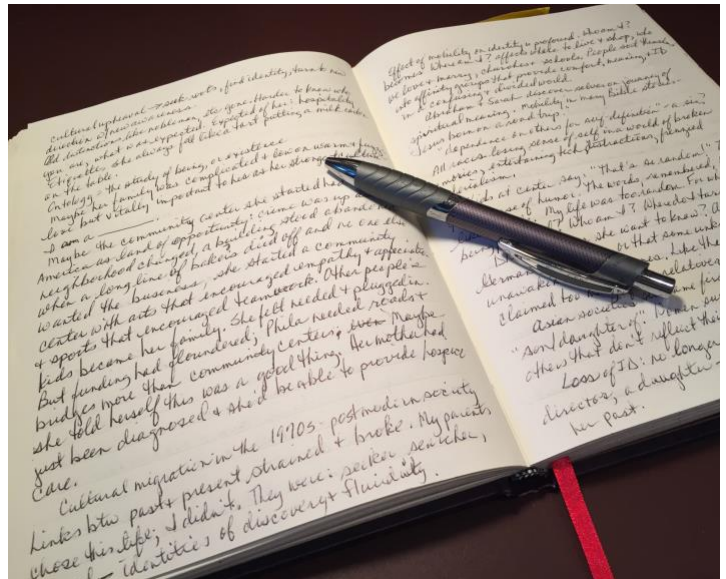 Cultural upheaval → seek roots, find identity, turn to new
direction of new awareness.
Old distinctions like nobleman, etc gone. Harder to know who
you are, what was expected. Expected of her: hospitality
Etiquette: she always felt like a tart putting a milk carton
on the table.
Ontology - the study of being, or existence
Maybe her family was complicated &
love but vitally important to her as her strongest
I am a
Maybe the community center she started had
America as land of opportunity: crime was up
neighborhood changed, a building stood abandoned
when a long line of bakers died off and no one else
wanted the business, she started a community
center with arts that encouraged empathy & appreciation
& sports that encouraged teamwork. Other people's
kids became her family. She felt needed & plugged in.
But funding had floundered; Phila needed roads &
bridges more than community centers; Maybe
she told herself this was a good thing. Her mother had
just been diagnosed & she'd be able to provide hospice
care.
Cultural migration in the 1970s - postmodern society
Links btw past & present strained & broke. My parents
chose this life; I didn't. They were: seeker, searcher,
identities of discovery & fluidity.
Effect of mobility on identity is profound. Who am I?
becomes Where am I? affects where to live & shop, who
we love & marry, churches, schools. People sort themselves
into affinity groups that provide comfort, meaning, & ID
in a confusing & divided world.
Abraham & Sarah discover selves on journey of
spiritual meaning. Mobility in many Bible stories.
Jesus born on a road trip.
"dependence on others for self definition" - a sin?
All races losing sense of self in a world of broken
memories, entertaining tech distractions, frenzied
materialism.
Kids at center say: "That's so random!"
sense of humor. The words, remembered,
My life was too random. For wh
Who am I? Where do I turn
she want to know?
or that some unk
unawaken
Like th
claimed too relatives
Asian societies
"son/daughter of." Women
others that don't reflect their
Loss of ID: no longer
director, a daughter
her past.